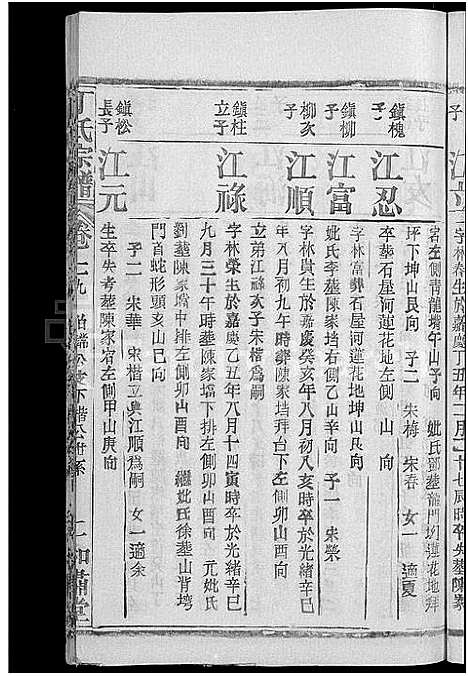 子
江
字林春生於嘉慶丁丑年二月
十七辰時卒失墓陳家
塆左側青龍嘴午山子向
妣氏鄧墓龍門圽蓮花地拜
坪下坤山艮向 子二 朱梅 宋春 女一 適夏
鎮槐
子
江忍
生卒墓石屋河蓮花地左側 山 向
鎮柳
子
江富
字林富葬石屋河蓮花地坤山艮向
妣氏李墓陳家垱右側乙山辛向 子一 朱榮
柳次
子
江順
字林貴生於嘉慶癸亥年八月初八亥時卒於光緒辛巳
年八月初九午時墓陳家垱拜台下左側卯山酉向
立弟江祿次子朱楷為嗣
鎮柱
立子
江祿
字林榮生於嘉慶乙丑年八月十四寅時卒於光緒辛巳
九月三十午時墓陳家壋下排左側卯山酉向 元妣氏
劉墓陳家壋中排左側卯山酉向 繼妣氏徐墓山背塆
門首蛇形頭亥山巳向
子二 朱華 宋楷立與江順為嗣 女一適余
鎮松
長子
江元
生卒失考墓陳家宕左側甲山庚向
丁氏宗譜
卷二九